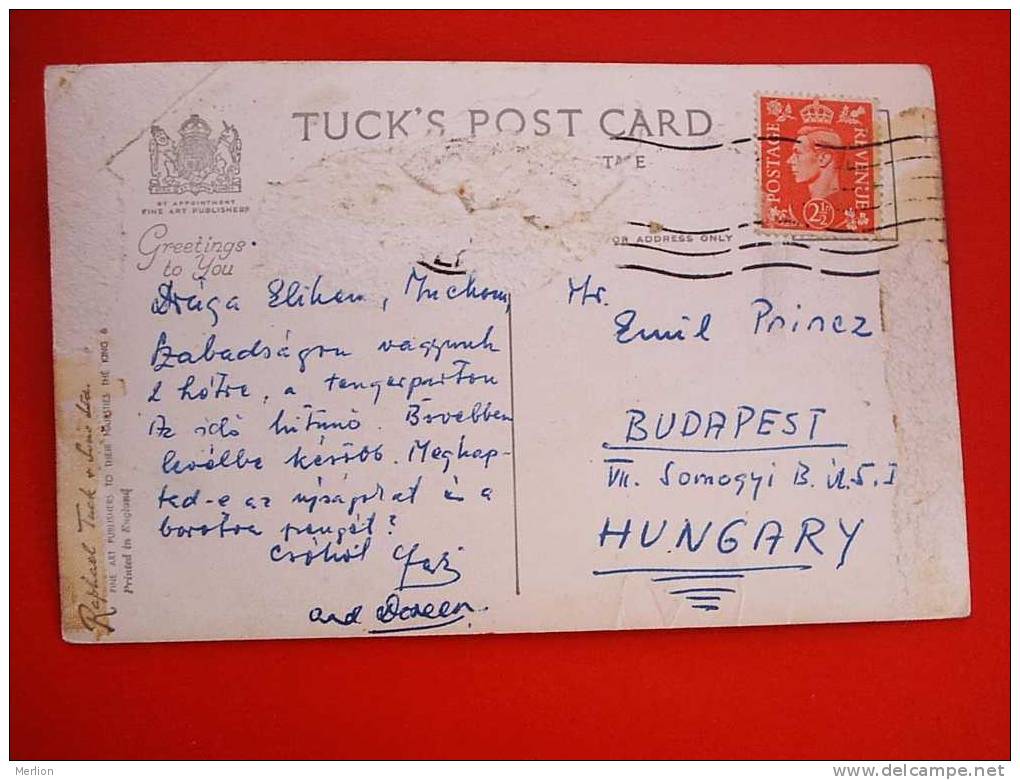 TUCK'S POST CARD
BY APPOINTMENT
FINE ART PUBLISHERS
Greetings
to You
POSTAGE
REVENUE
2½
ADDRESS ONLY
Drága
Szabadságon vagyunk
2 hétre, a tengerparton
Az idő kitünő. Bővebben
levélbe később. Megkap-
tad-e az ujságokat és a
borotva pengét?
Csókol
and Doreen.
Mr.
Emil Princz
BUDAPEST
VII. Somogyi B. u. 5. I
HUNGARY
Raphael Tuck &
FINE ART PUBLISHERS TO THEIR MAJESTIES THE KING &
Printed in England
Merlion
delcampe.net